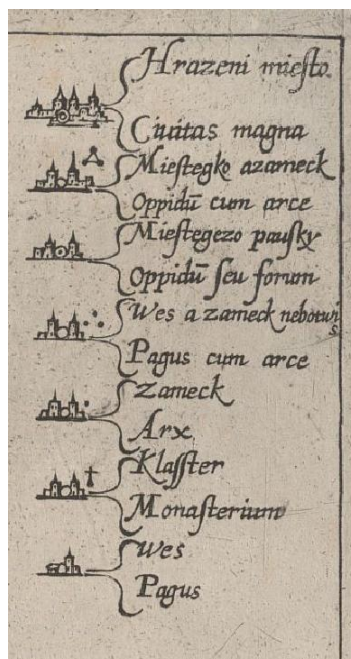 Hrazeni mieſto.
Ciuitas magna
Mieſtegko azameck
Oppidū cum arce
Mieſtegezo pauſky
Oppidū ſeu forum
Wes a zameck
Pagus cum arce
Zameck
Arx
Klaſſter
Monaſterium
Wes
Pagus